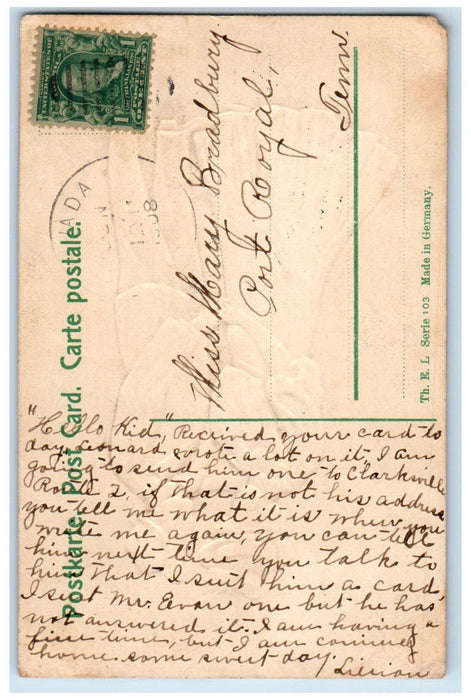 Postkarte. Post Card. Carte postale.
ADA
1908
Miss Mary Bradbury
Port Royal,
Tenn.
Th. E. L Serie 103 Made in Germany.
"Hello Kid," Recived your card to
day Leonard wrote a lot on it I am
going to send him one to Clarksville
Route 2, if that is not his address
you tell me what it is when you
write me again, you can tell
him next time you talk to
him that I sent him a card,
I sent Mr. Evan one but he has
not answered it. I am having a
fine time, but I am coming
home some sweet day.
Lilian